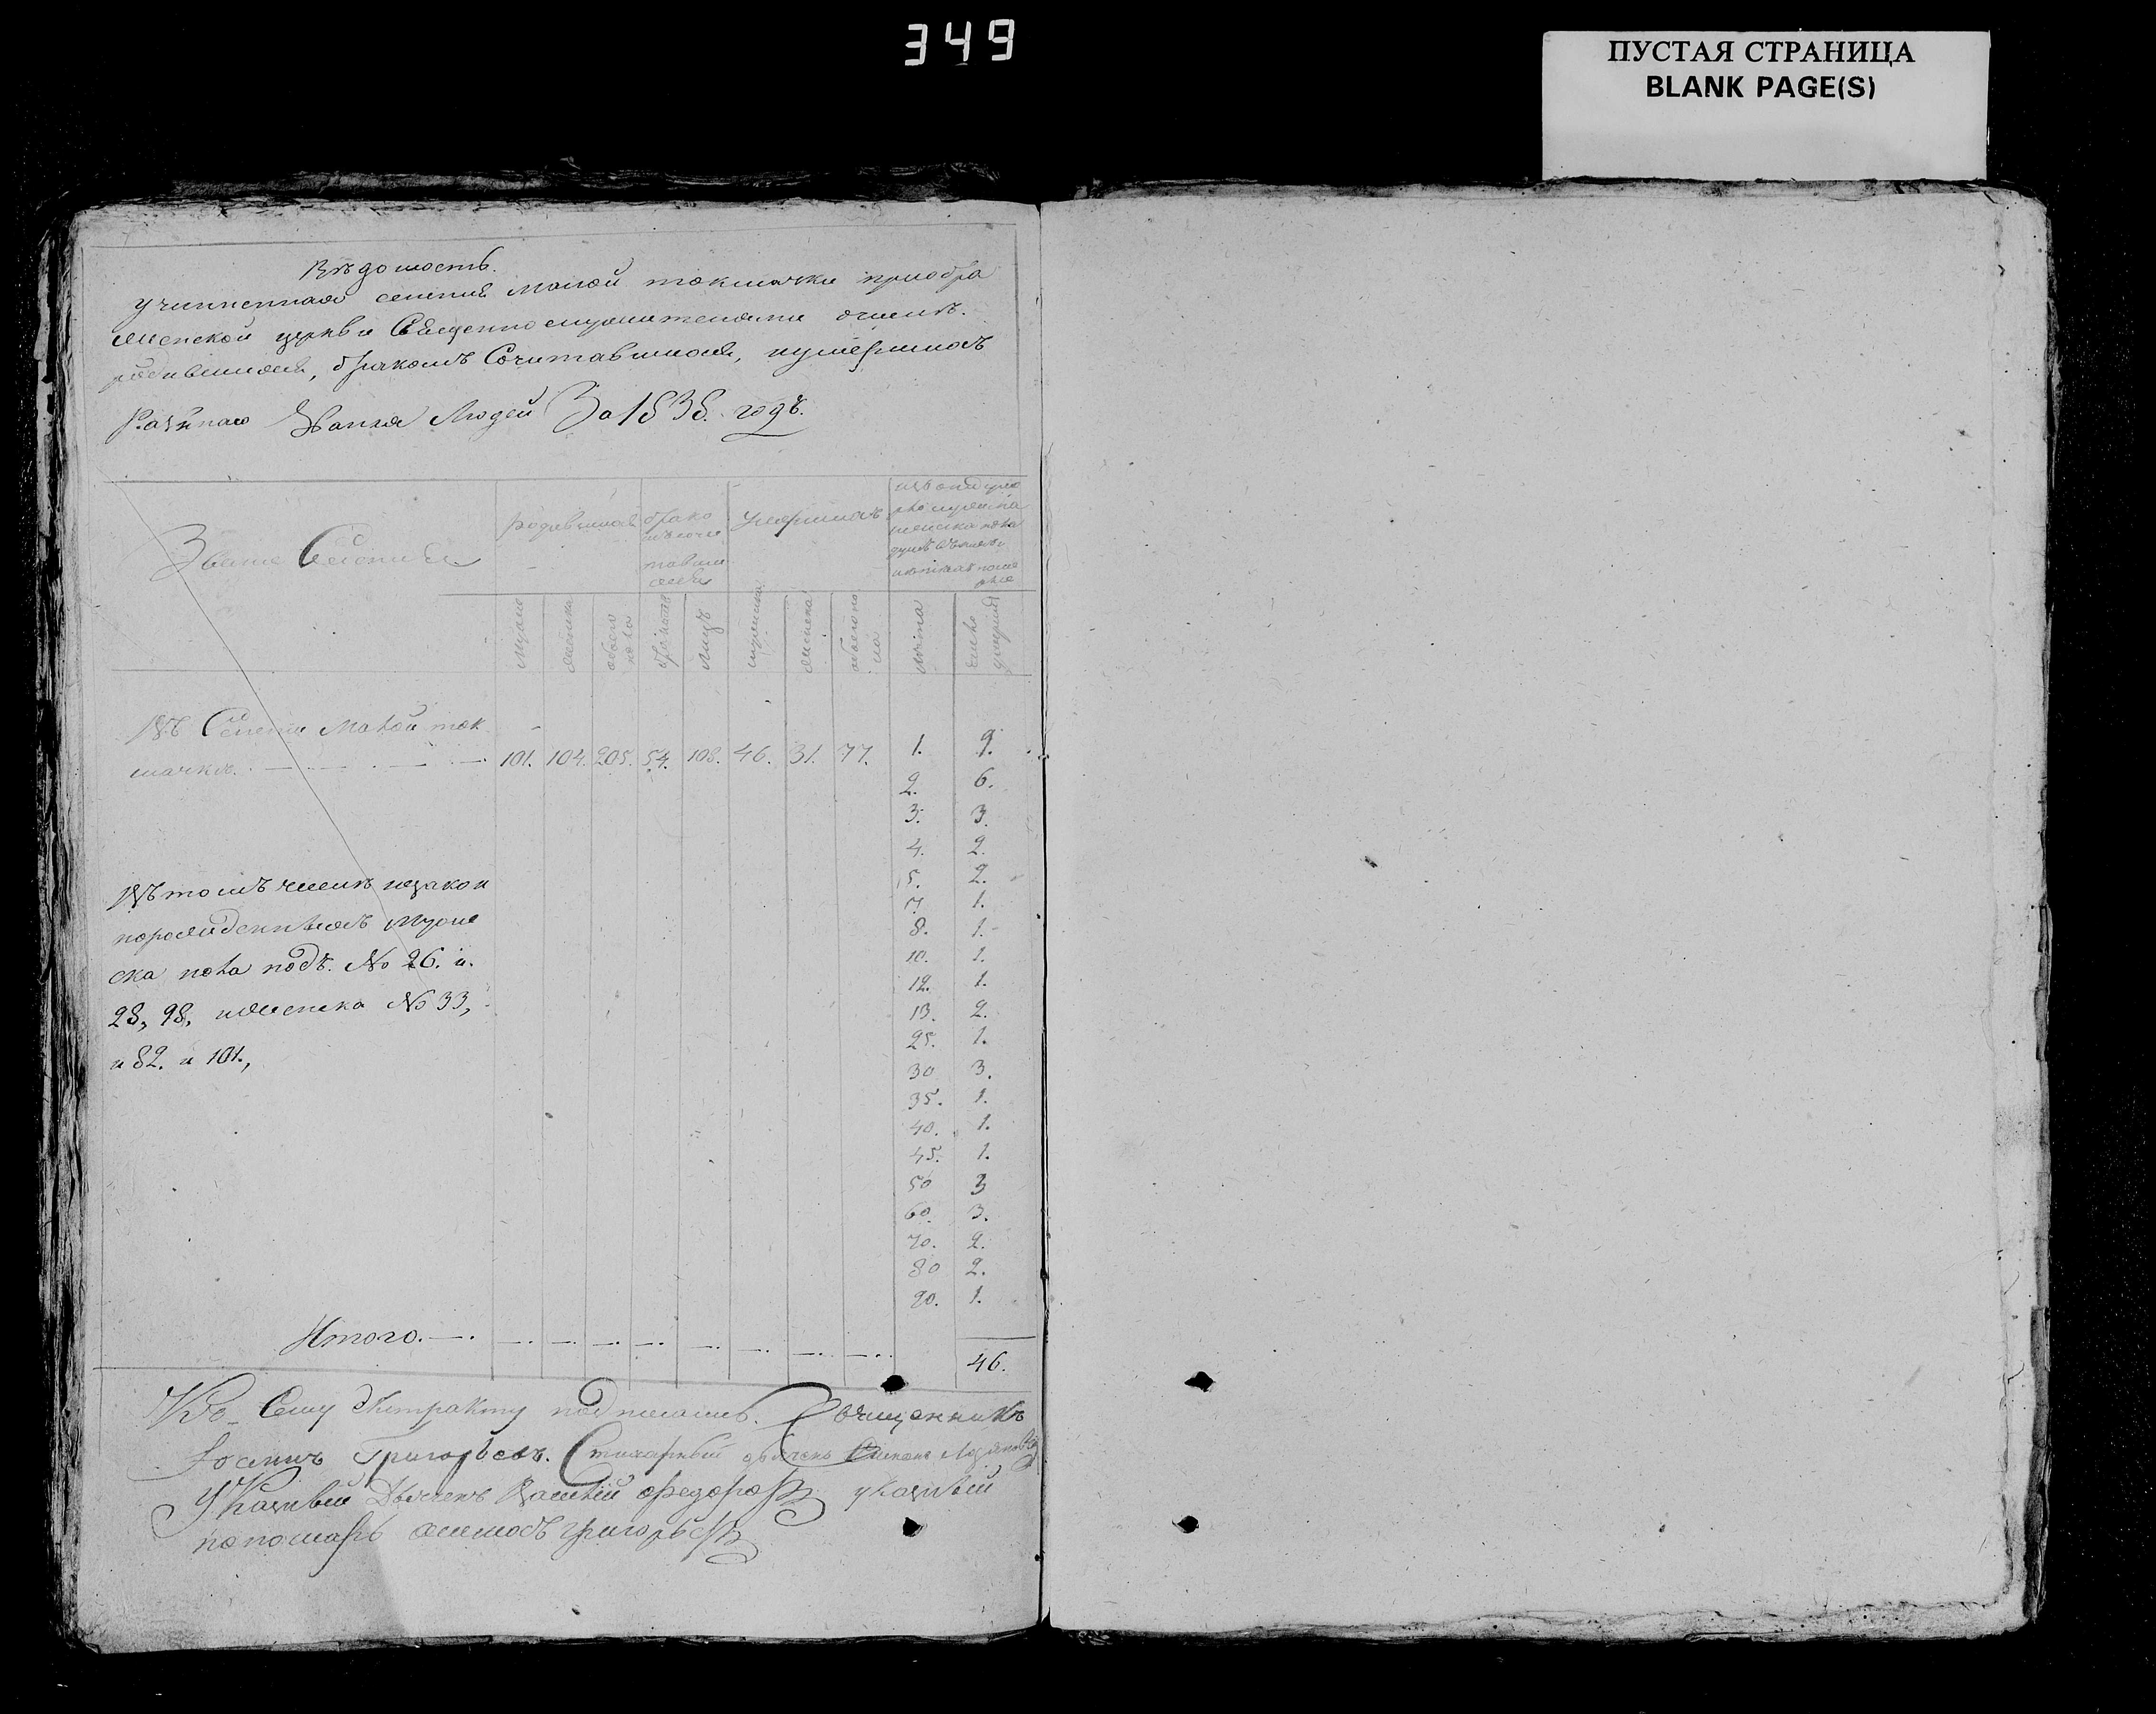 349
ПУСТАЯ СТРАНИЦА
BLANK PAGE(S)
Вѣдомость.
учиненная селенія Малой токмачки приобра
женской церкви Священнослужителями о числѣ
родившихся, бракомъ Сочитавшихся, иумершихъ
Разнаго Званія Людей За 1838. годъ.
Званіе Селенія
родившихся
брако
мъ соче
тавши
хся
умершихъ
мужеска
женска
обоего
пола
браковъ
лицъ
мужеска
женска
обоего по
ла
лѣта
число
умершихъ
Въ Селеніи Малой ток
мачки. 101. 104. 205. 54. 108. 46. 31. 77. 1. 9.
2. 6.
3. 3.
4. 2.
5. 2.
7. 1.
8. 1.
10. 1.
12. 1.
13. 2.
25. 1.
30 3.
35. 1.
40. 1.
45. 1.
50 3
60. 3.
70. 2.
80 2.
90. 1.
Въ томъ числѣ незакон
норожденныхъ Муже
ска пола подъ. № 26. и.
28, 98, иженска № 33,
и 82. и 101.,
Итого. 46.
Ко Сему Экстракту подписались. Священникъ
Іоаннъ Григорьевъ. Стихарный дьячекъ
Указный Дьячекъ Василій Федоровъ указный
пономарь Григорьевъ